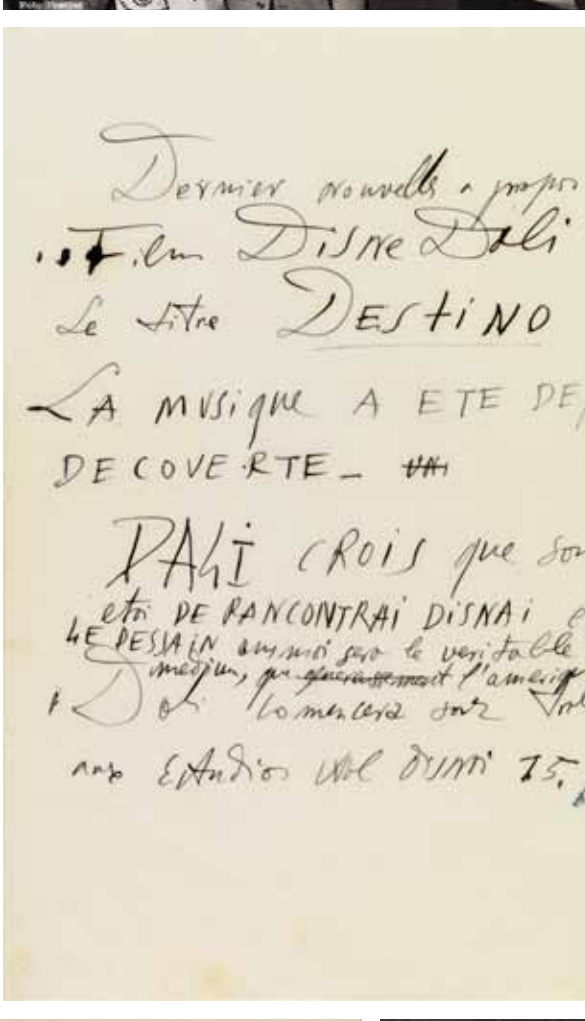 Dernier nouvelle a propo
Film Disne Dali
Le titre DESTINO
LA MUSique A ETE DE
DECOVERTE_
DALi CROiS que son
etoi DE RANCONTRAi DiSNAi
LE DESSAiN anmoi sera le veritable
medium, que l'ameriq
Dali Comencera sour
aux Estudios Wal DISNAi 15.